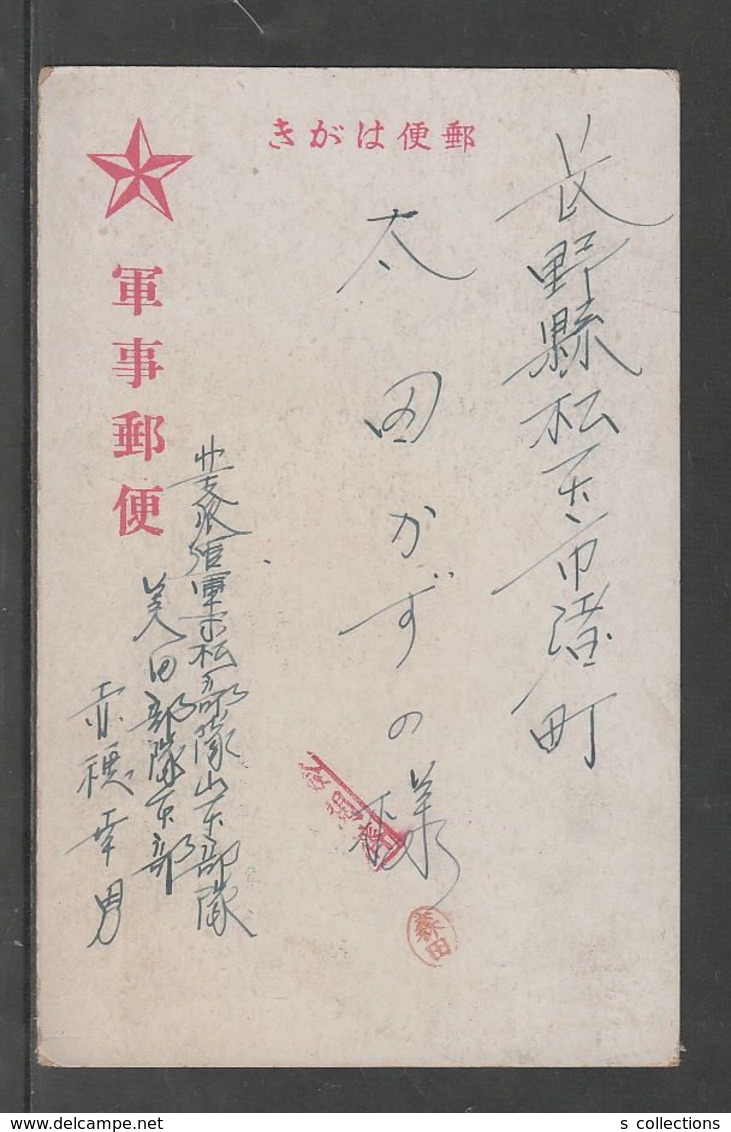 郵便はがき
長野縣松本市澄町
太田かずの様
軍事郵便
北支派遣軍末松部隊山本部隊
美田部隊本部
赤穂幸男
検閲済
森田
s collections